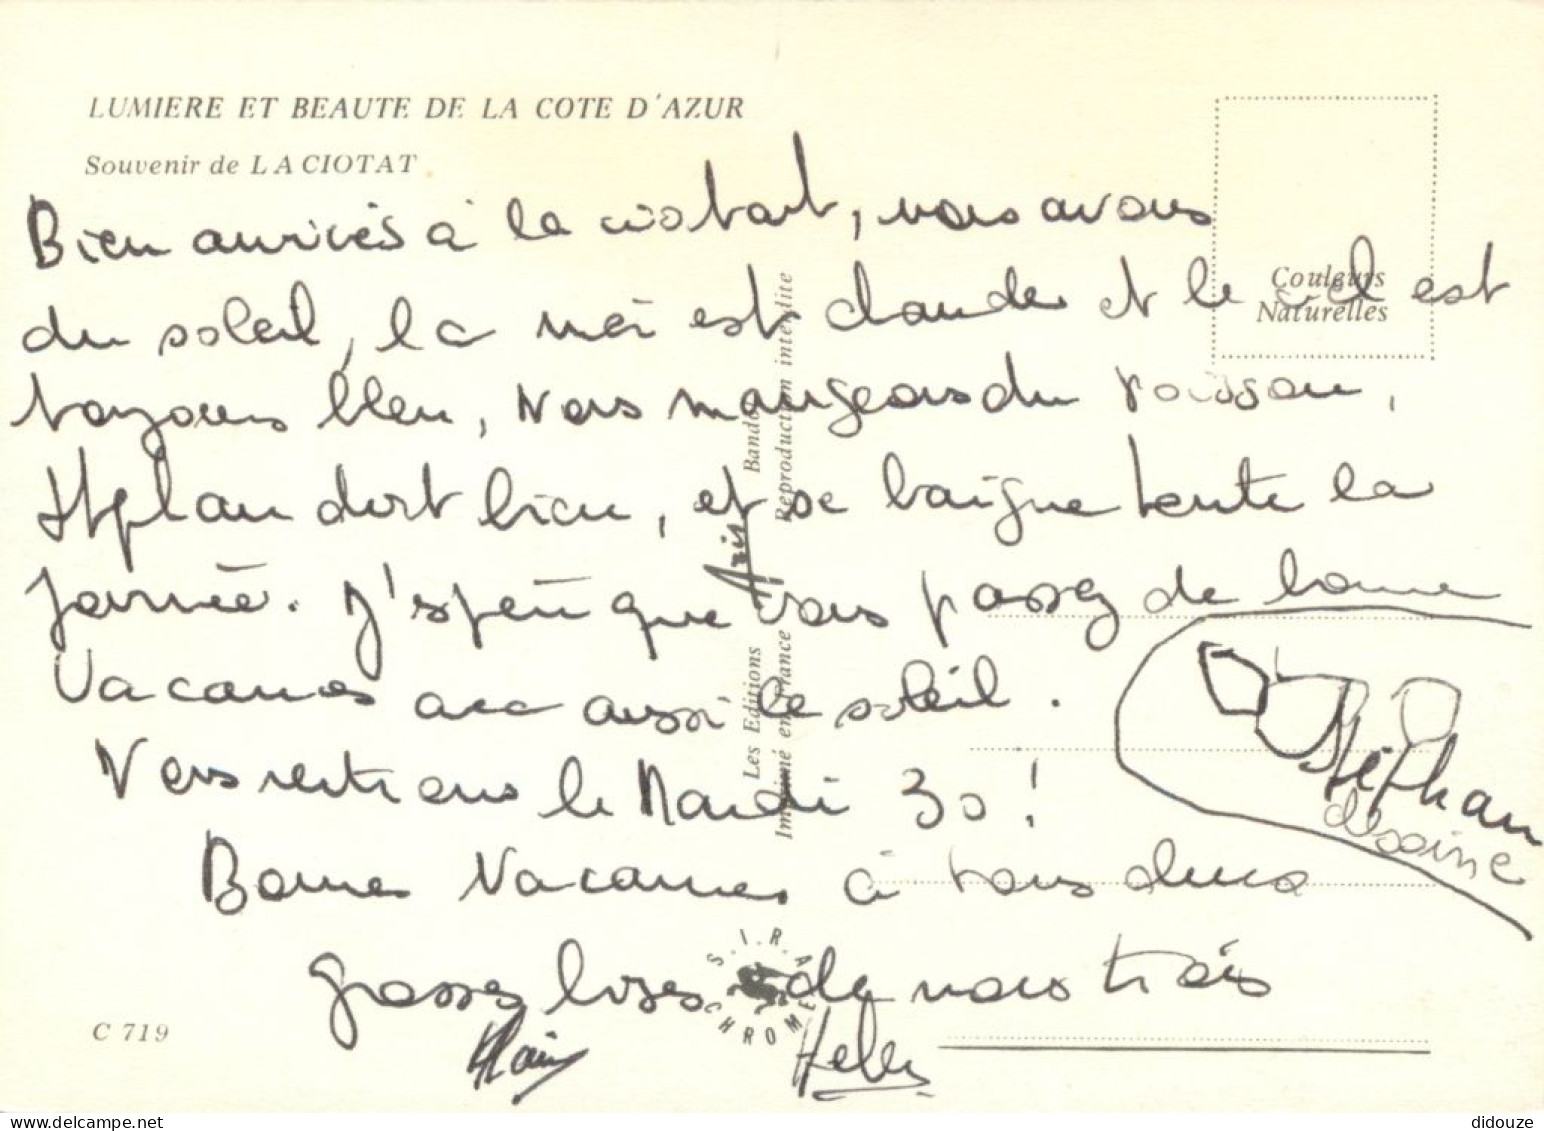 LUMIERE ET BEAUTE DE LA COTE D'AZUR
Souvenir de LA CIOTAT
Couleurs
Naturelles
Bien arrivés à la ciotat, nous avons
du soleil, la mer est chaude et le ciel est
toujours bleu, Nous mangeons du poisson,
Stéphan dort bien, et se baigne toute la
journée. J'espère que vous passez de bonnes
Vacances avec aussi le soleil.
Nous rentrons le Mardi 30!
Bonnes Vacances à tous deux
grosses bises de nous trois
Alain
Stéphan
dessine
Les Editions Aris Bandol
Imprimé en France Reproduction interdite
S.I.R.A
CHROME
C 719
didouze